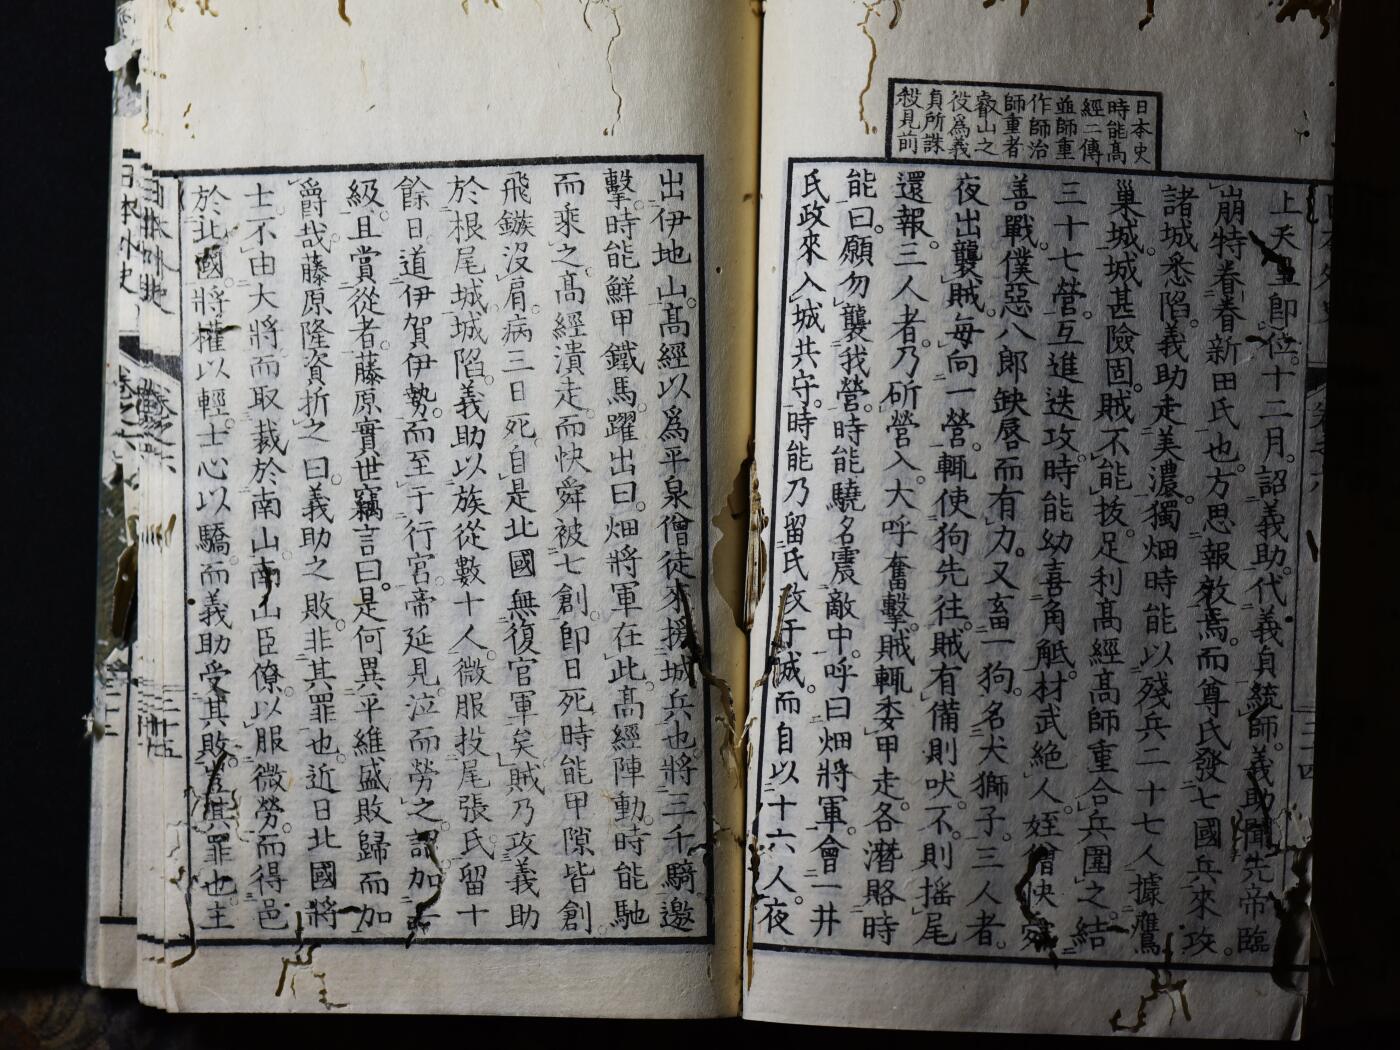 日本史
時能高
經二傳
並師重
作師治
師重者
叡山之
役爲義
貞所誅
殺見前
上天皇卽位。十二月。詔義助。代義貞統師。義助聞先帝臨
崩特眷眷新田氏也。方思報效焉。而尊氏發七國兵來攻。
諸城悉陷。義助走美濃。獨畑時能以殘兵二十七人據鷹
巢城。城甚險固。賊不能拔。足利高經高師重合兵圍之。結
三十七營。互進迭攻。時能幼喜角觝。材武絶人。姪僧快
善戰。僕惡八郎缺唇而有力。又畜一狗。名犬獅子。三人者。
夜出襲賊。每向一營。輒使狗先往。賊有備則吠。不則搖尾
還報。三人者。乃斫營入。大呼奮擊。賊輒委甲走。各潛賂時
能曰。願勿襲我營。時能驍名震敵中。呼曰畑將軍。會一井
氏政來入城共守。時能乃留氏政于城。而自以十六人。夜
出伊地山。高經以爲平泉僧徒來援城兵也。將三千騎邀
擊。時能鮮甲鐵馬。躍出曰。畑將軍在此。高經陣動。時能馳
而乘之。高經潰走。而快舜被七創。卽日死。時能甲隙皆創。
飛鏃沒肩。病三日死。自是北國無復官軍矣。賊乃攻義助
於根尾城。城陷。義助以族從數十人。微服投尾張氏。留十
餘日。道伊賀伊勢。而至于行宮。帝延見。泣而勞之。詔加一
級。且賞從者。藤原實世竊言曰。是何異平維盛敗歸而加
爵哉。藤原隆資折之曰。義助之敗。非其罪也。近日北國將
士。不由大將而取裁於南山。南山臣僚。以服微勞。而得邑
於北國。將權以輕。士心以驕。而義助受其敗。豈其罪也。主
日本外史
卷之六
三十五